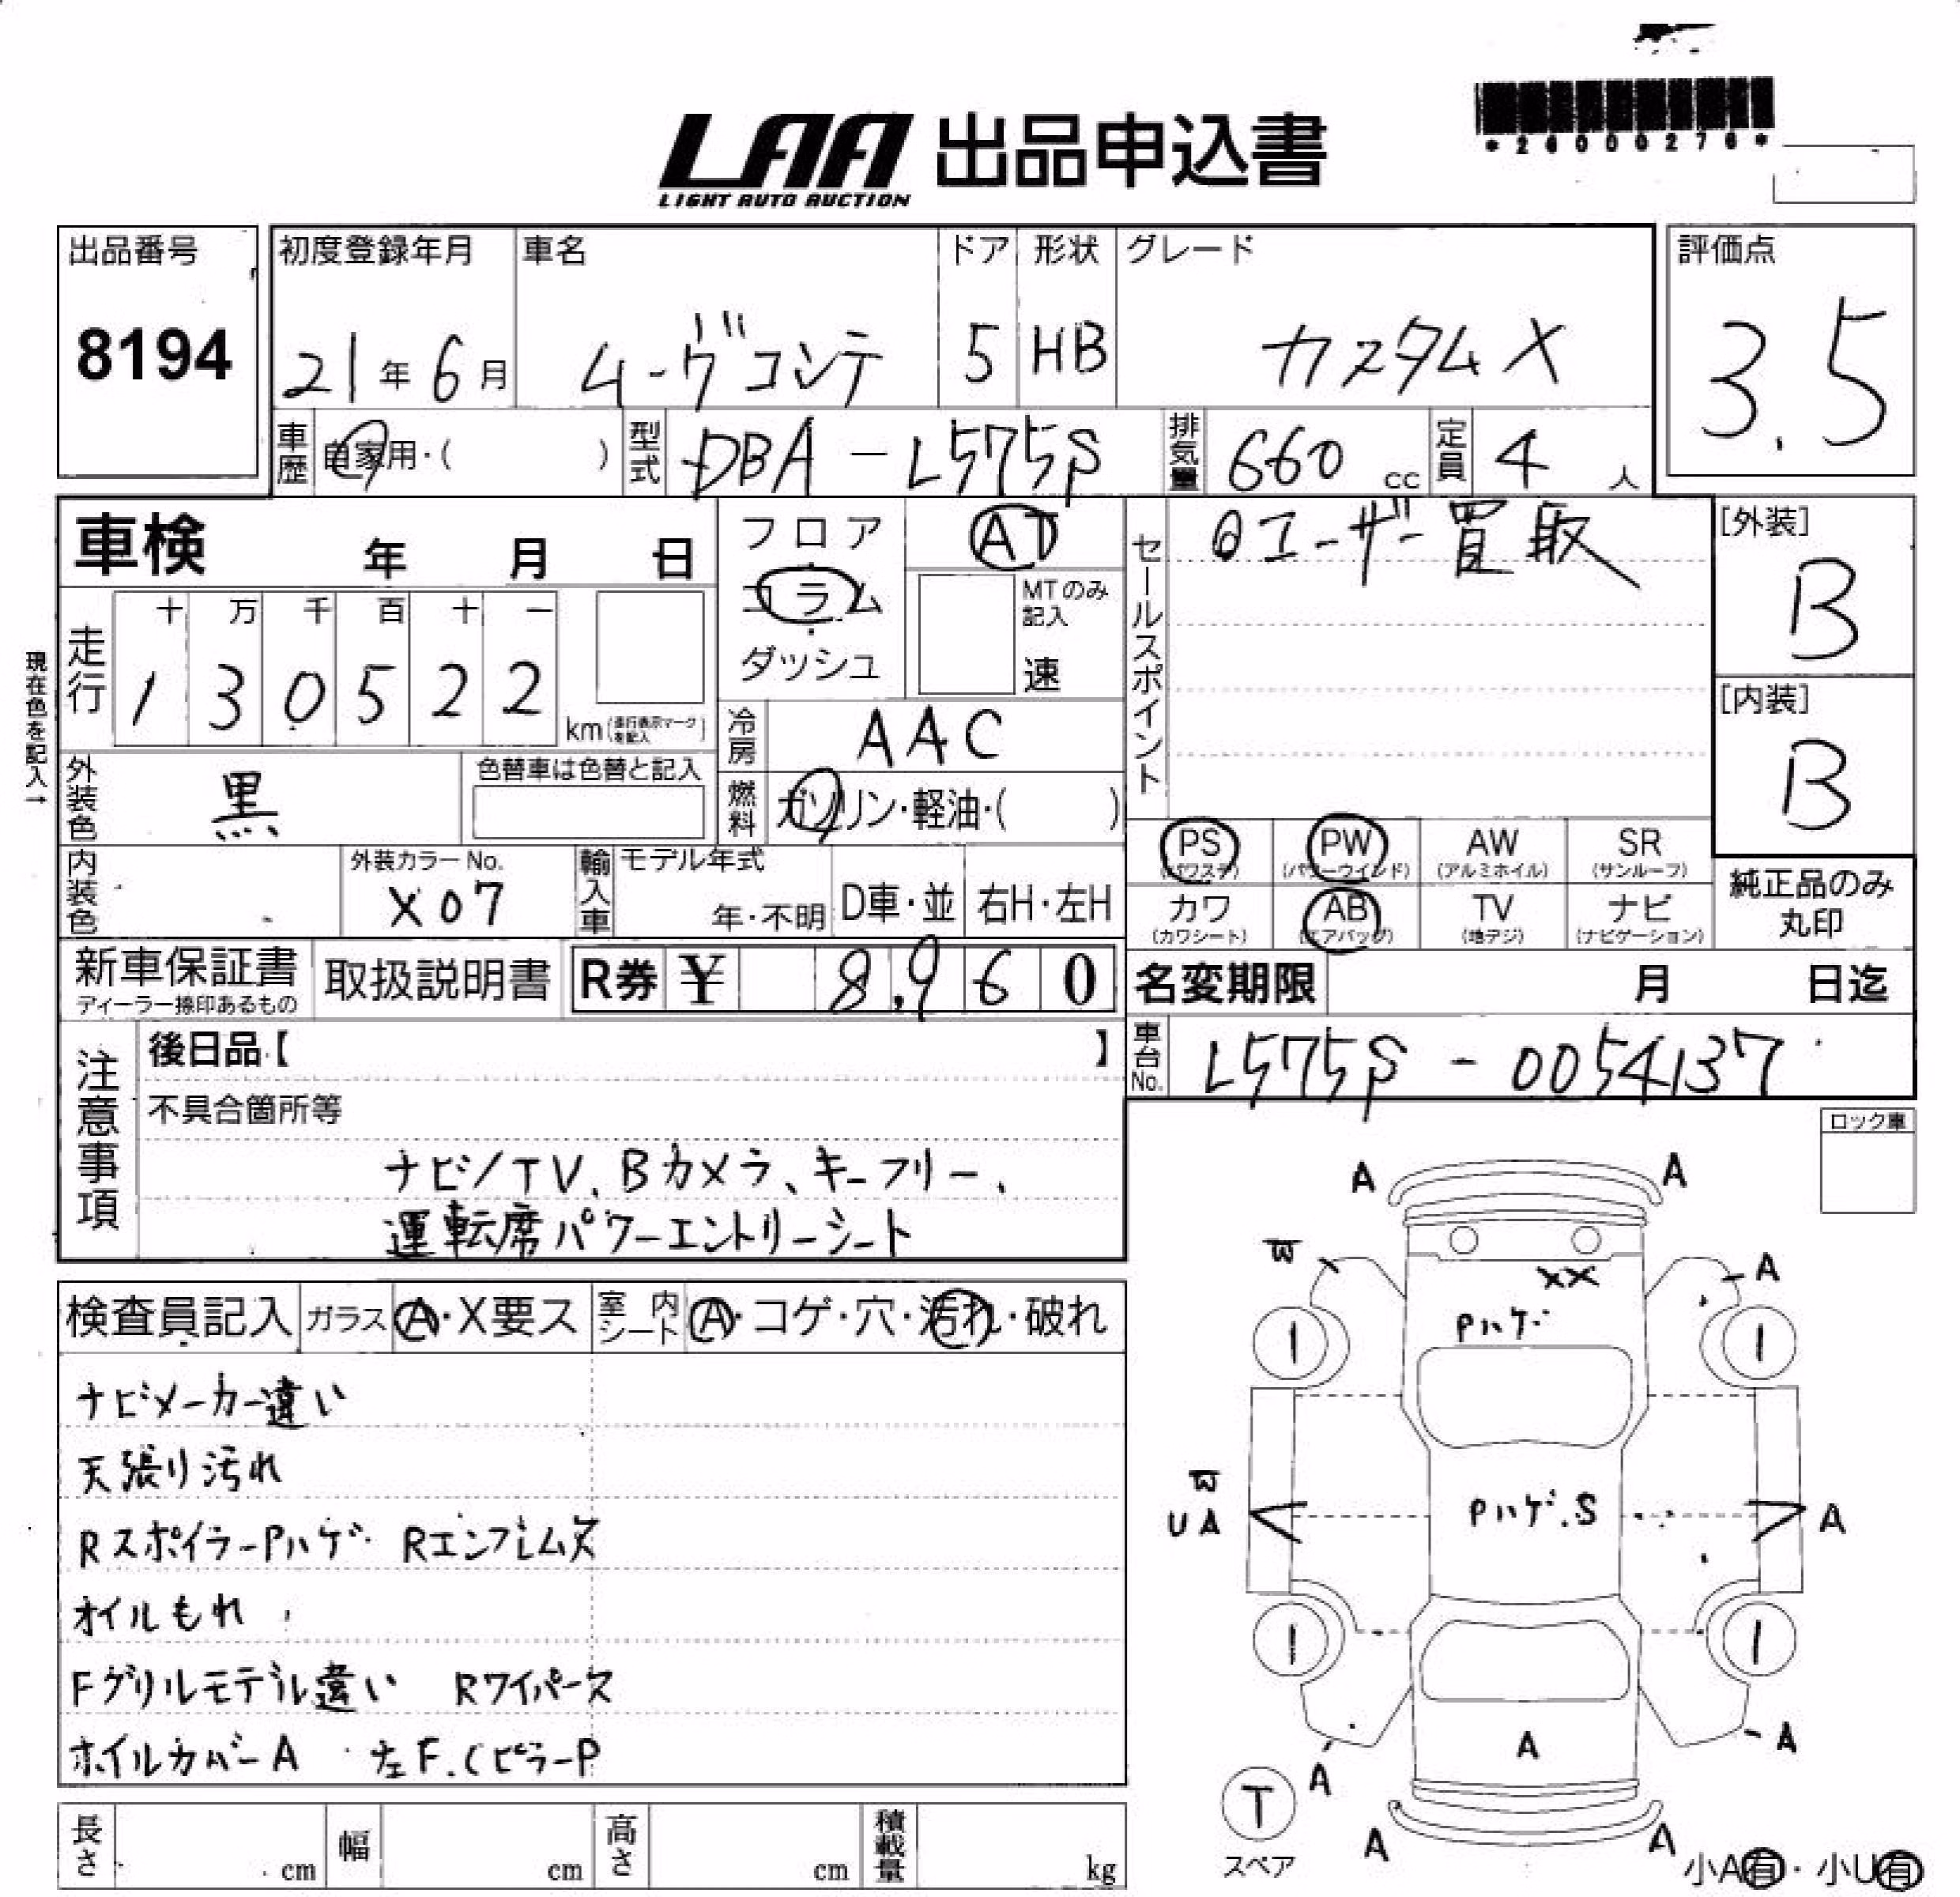 *26000276*
LAA 出品申込書
LIGHT AUTO AUCTION
出品番号 初度登録年月 車名 ドア 形状 グレード 評価点
8194 21年6月 ムーヴコンテ 5 HB カスタムX 3.5
車歴 自家用・( ) 型式 DBA-L575S 排気量 660 cc 定員 4 人
車検 年 月 日 フロア AT セールスポイント ①ユーザー買取 [外装]
コラム MTのみ記入 B
ダッシュ 速
現在色を記入→
走行 十 万 千 百 十 一
1 3 0 5 2 2 km(走行表示マークを記入)
冷房 AAC [内装]
B
外装色 黒 色替車は色替と記入 燃料 ガソリン・軽油・( )
PS PW AW SR
(パワステ) (パワーウインド) (アルミホイル) (サンルーフ)
内装色 外装カラーNo. X07 輸入車 モデル年式 年・不明 D車・並 右H・左H
カワ AB TV ナビ 純正品のみ
(カワシート) (エアバッグ) (地デジ) (ナビゲーション) 丸印
新車保証書 取扱説明書 R券 ¥ 8,960 名変期限 月 日迄
ディーラー捺印あるもの
注意事項 後日品【 】 車台No. L575S-0054137
不具合箇所等 ロック車
ナビ/TV、Bカメラ、キーフリー、
運転席パワーエントリーシート
検査員記入 ガラス A・X要ス 室内シート A・コゲ・穴・汚れ・破れ
ナビメーカー違い
天張り汚れ
RスポイラーPハゲ RエンブレムヌK
オイルもれ
Fグリルモデル違い Rワイパーヌ
ホイルカバーA 左F.CピラーP
長さ cm 幅 cm 高さ cm 積載量 kg
A A
W A
XX
Pハゲ
W
UA Pハゲ.S A
A A A
T
スペア A A
小A有・小U有